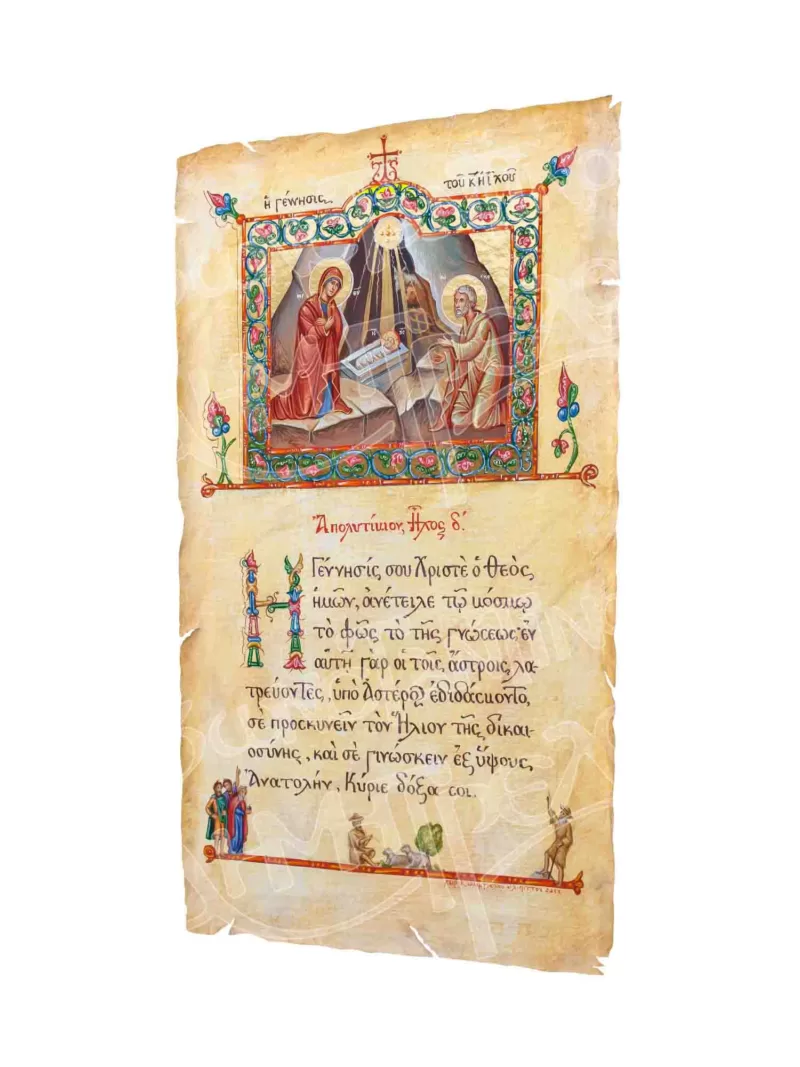 ἡ γέννησις τοῦ Κ(υ) ἡ(μῶν) Ἰ(υ) Χοῦ
Ἀπολυτίκιον, Ἦχος δ´.
Ἡ Γέννησίς σου Χριστὲ ὁ Θεὸς,
ἡμῶν, ἀνέτειλε τῷ κόσμῳ
τὸ φῶς τὸ τῆς γνώσεως· ἐν
αὐτῇ γὰρ οἱ τοῖς, ἄστροις, λα-
τρεύοντες, ὑπὸ Ἀστέρος ἐδιδάσκοντο,
σὲ προσκυνεῖν τὸν Ἥλιον τῆς δικαι-
οσύνης, καὶ σὲ γινώσκειν ἐξ ὕψους,
Ἀνατολήν, Κύριε δόξα σοι.